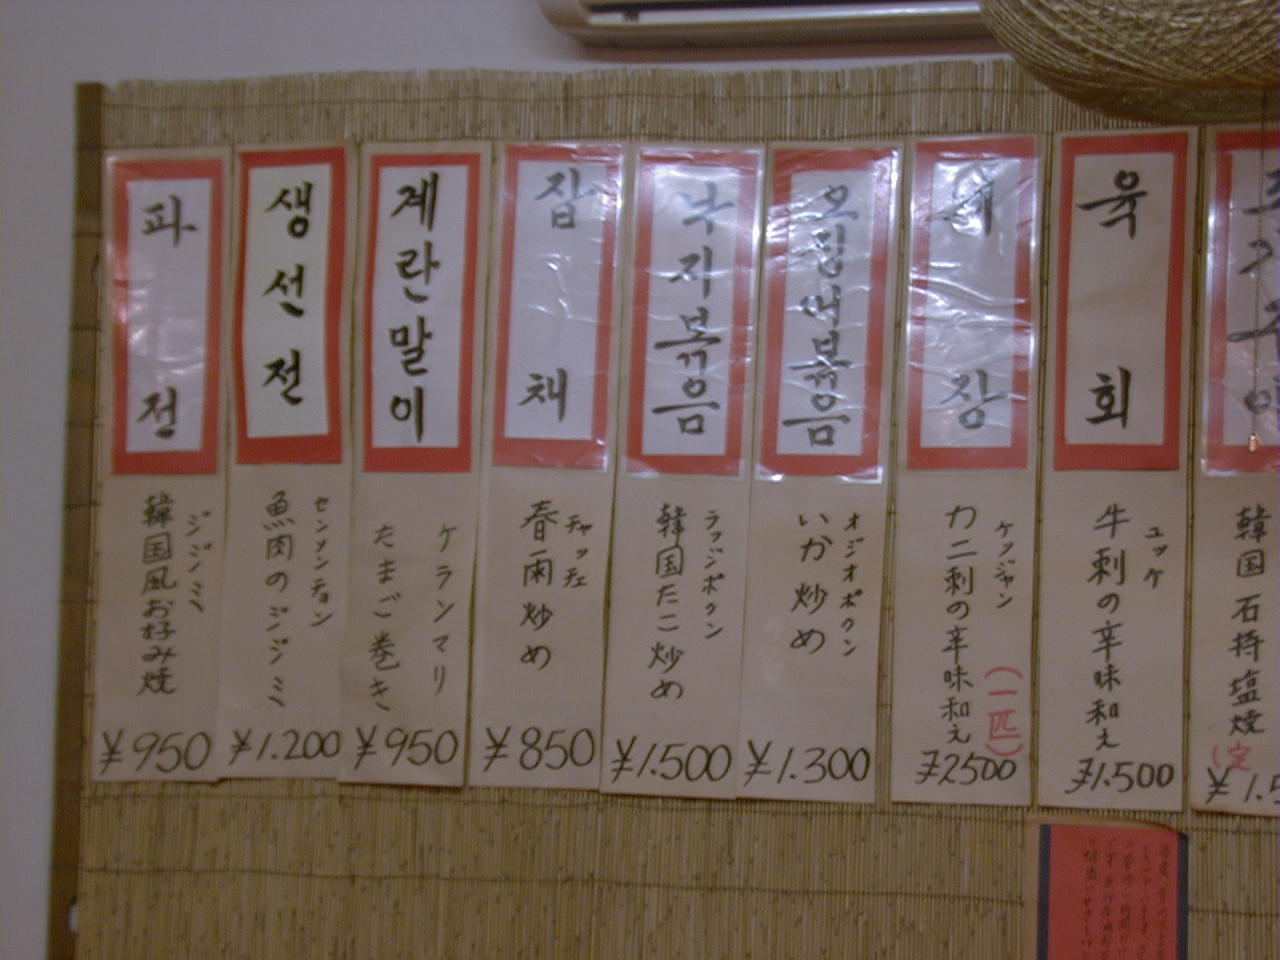 파전
ジジミ
韓国風お好み焼
¥950
생선전
センソンチョン
魚肉のジジミ
¥1.200
계란말이
ケランマリ
たまご巻き
¥950
잡채
チャッチェ
春雨炒め
¥850
낙지볶음
ラッジポクン
韓国たこ炒め
¥1.500
오징어볶음
オジオポクン
いか炒め
¥1.300
게장
ケッジャン
カニ刺の辛味和え
(一匹)
¥2500
육회
ユッケ
牛刺の辛味和え
¥1.500
韓国石持塩焼
¥1.5